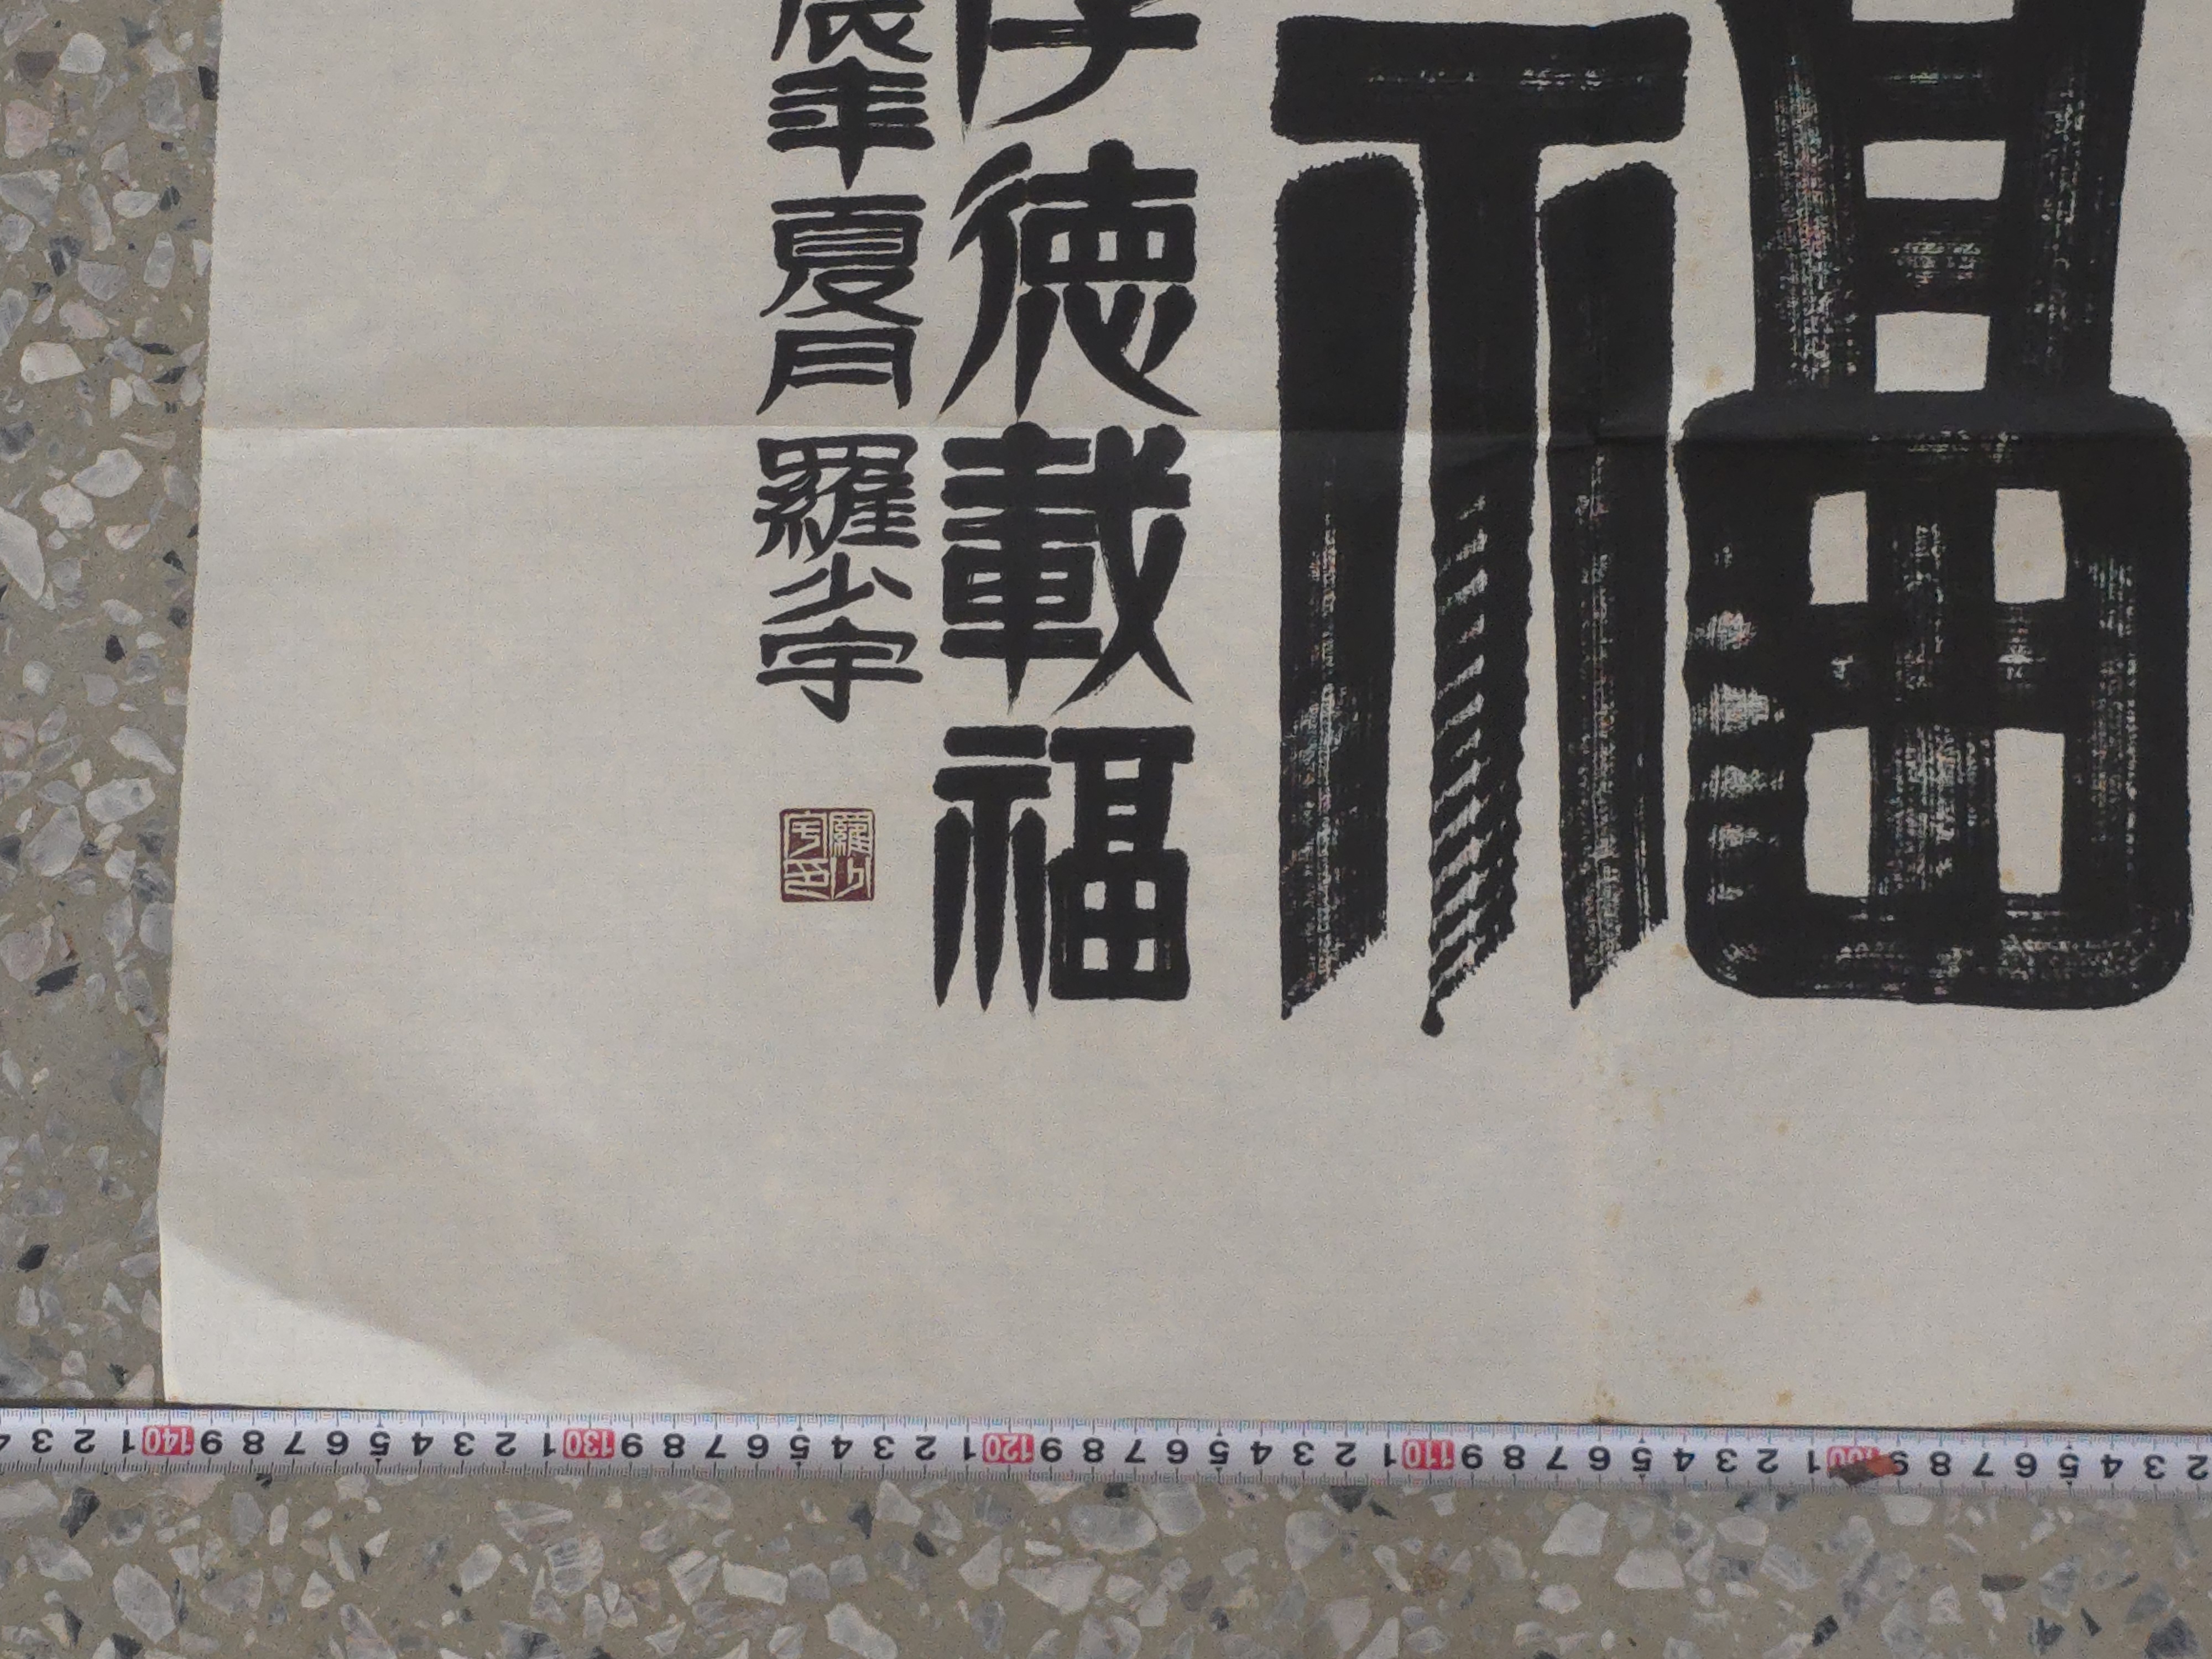 福
厚徳載福
辰年夏月羅少宇
羅少宇印
2 3 4 5 6 7 8 9 100 1 2 3 4 5 6 7 8 9 110 1 2 3 4 5 6 7 8 9 120 1 2 3 4 5 6 7 8 9 130 1 2 3 4 5 6 7 8 9 140 1 2 3 4